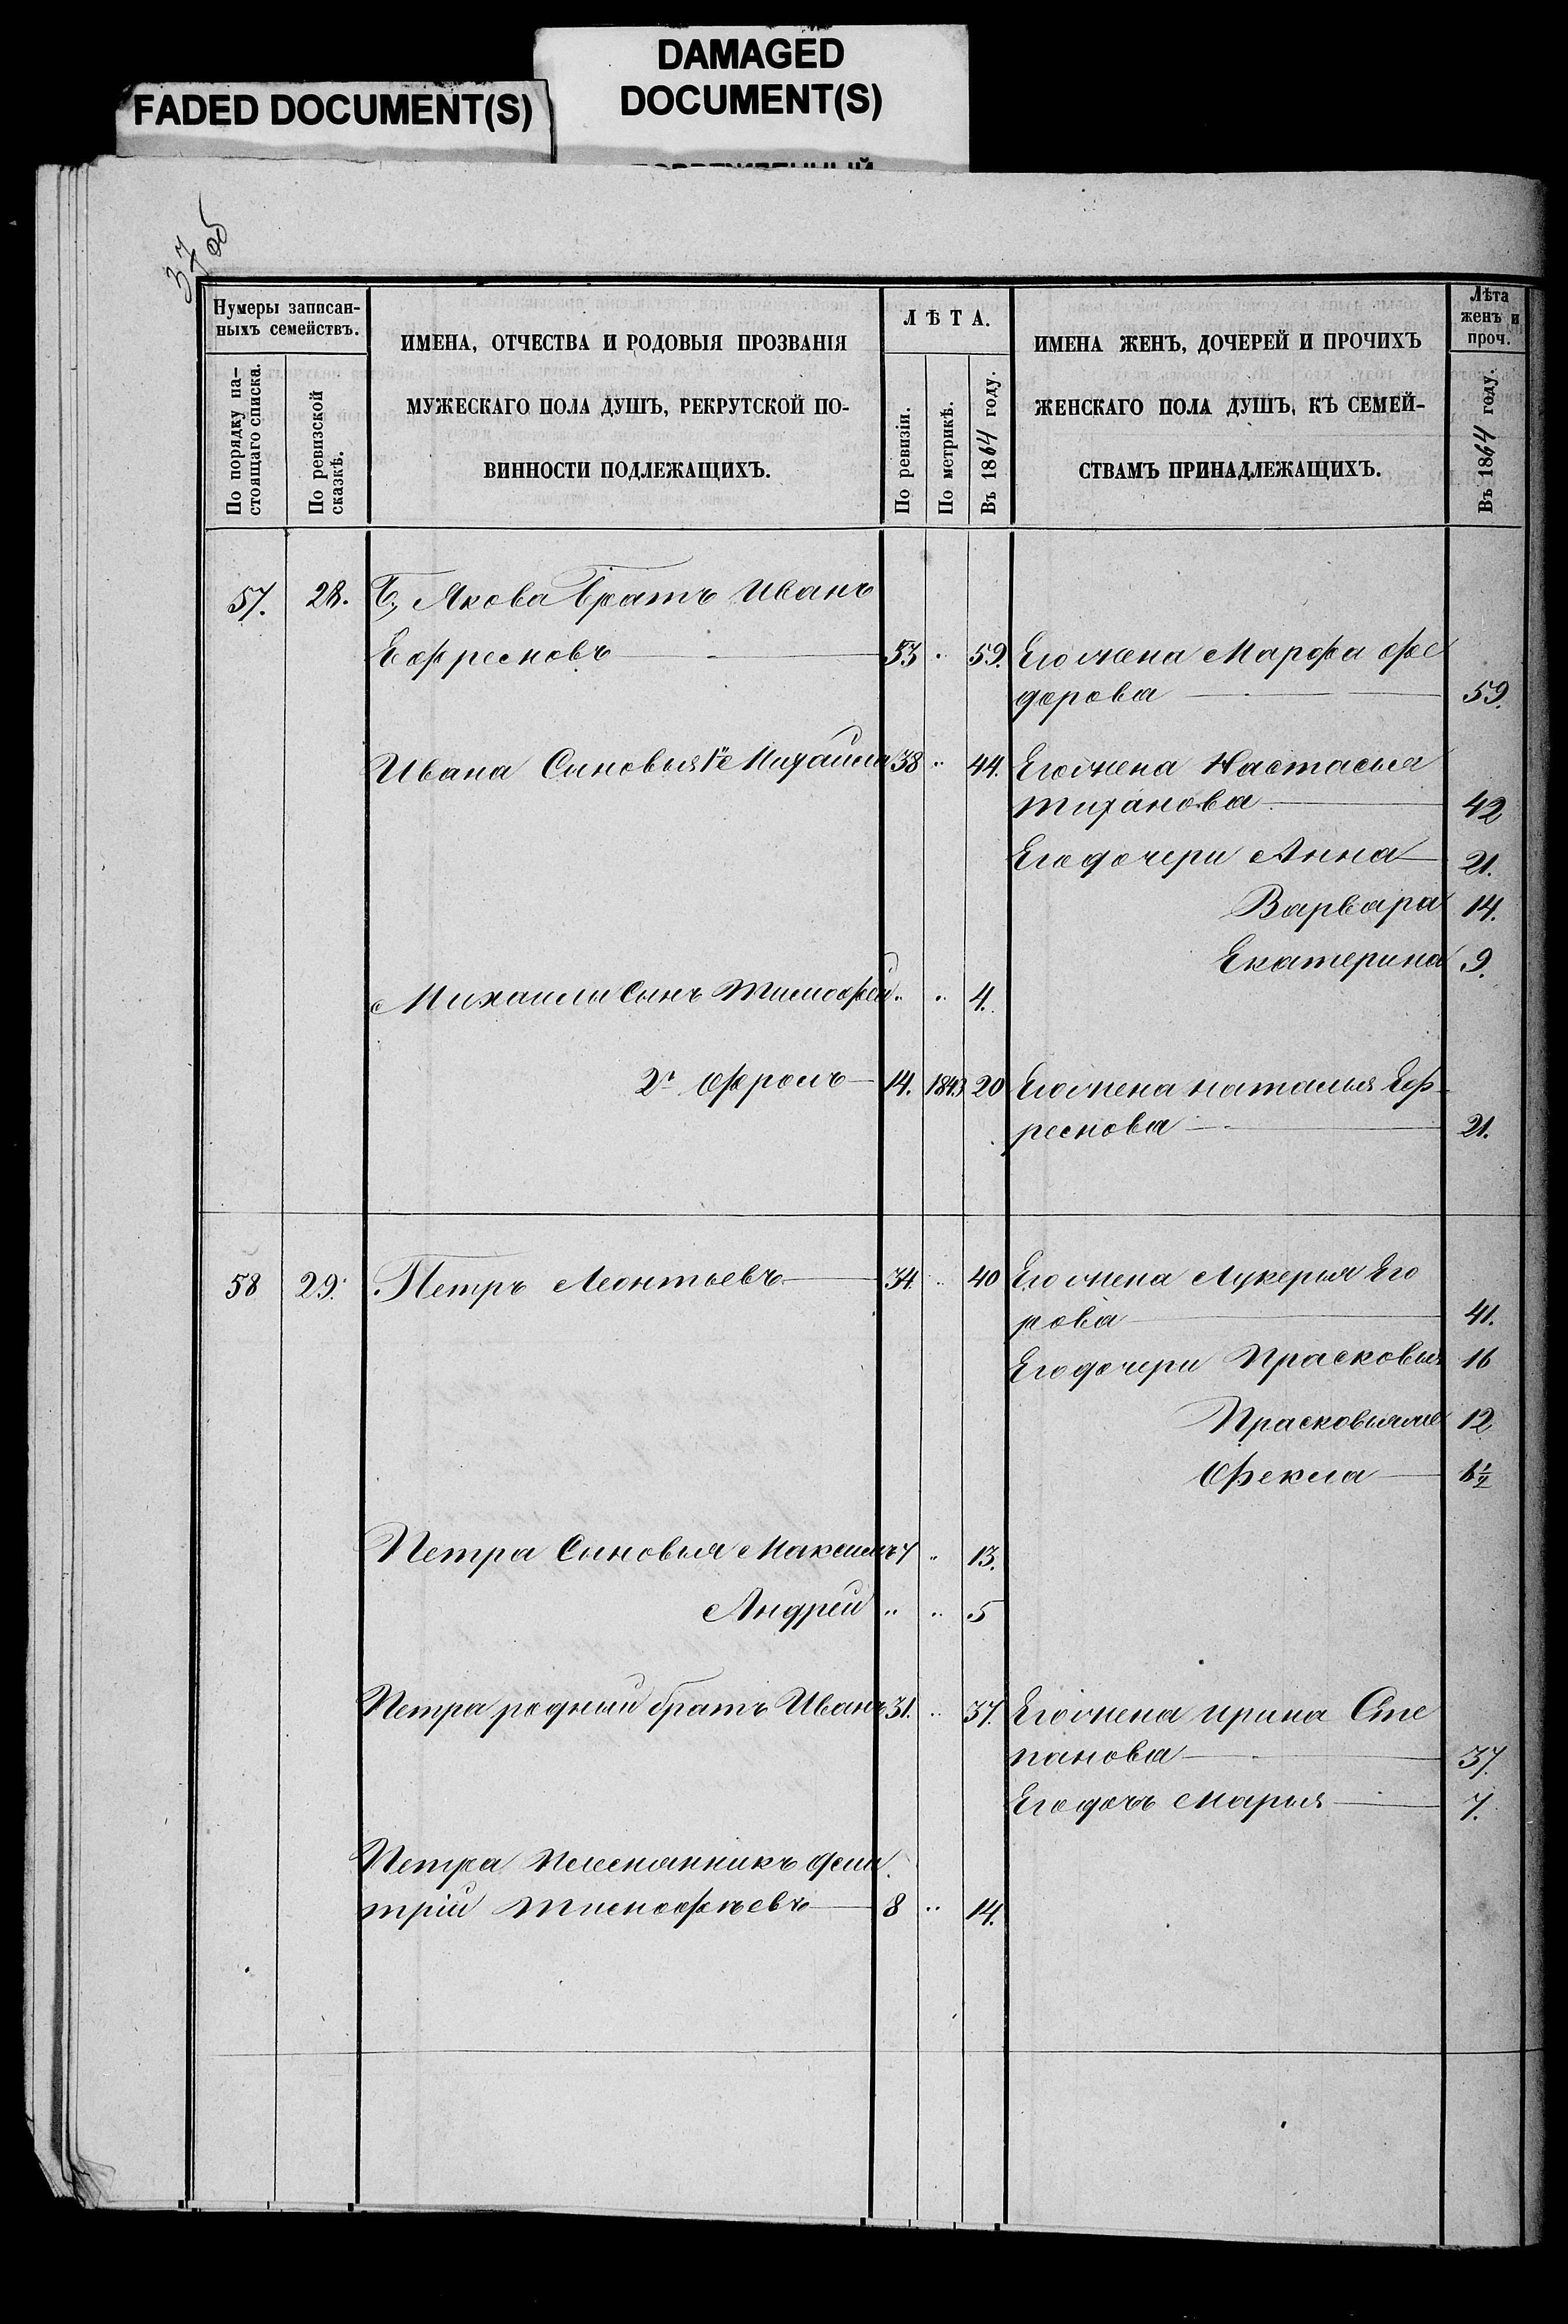 DAMAGED
DOCUMENT(S)
FADED DOCUMENT(S)
37 об
Нумеры записан-
ныхъ семействъ.
По порядку на-
стоящаго списка.
По ревизской
сказкѣ.
ИМЕНА, ОТЧЕСТВА И РОДОВЫЯ ПРОЗВАНІЯ
МУЖЕСКАГО ПОЛА ДУШЪ, РЕКРУТСКОЙ ПО-
ВИННОСТИ ПОДЛЕЖАЩИХЪ.
ЛѢТА.
По ревизіи.
По метрикѣ.
Въ 1864 году.
ИМЕНА ЖЕНЪ, ДОЧЕРЕЙ И ПРОЧИХЪ
ЖЕНСКАГО ПОЛА ДУШЪ, КЪ СЕМЕЙ-
СТВАМЪ ПРИНАДЛЕЖАЩИХЪ.
Лѣта
женъ и
проч.
Въ 1864 году.
57. 28. Якова Братъ Иванъ
Ефремовъ 53 59. Его жена Марфа Фе
дорова 59.
Ивана Сыновья 1й Михаила 38 44. Его жена Настасья
Тиханова 42
Его дочери Анна 21.
Варвара 14.
Екатерина 9.
Михаила Сынъ Тимофей 4.
2й Фролъ 14. 1843 20 Его жена Наталья Еф-
ремова 21.
58 29. Петръ Леонтьевъ 34. 40 Его жена Лукерья Его
рова 41.
Его дочери Прасковья 16
Прасковья же 12
Фекла 1/2
Петра Сыновья Максимъ 7 13.
Андрей 5
Петра родный братъ Иванъ 31. 37. Его жена Ирина Сте
панова 37.
Его дочь Марья 7.
Петра Племянникъ Дми
трій Тимофѣевъ 8 14.